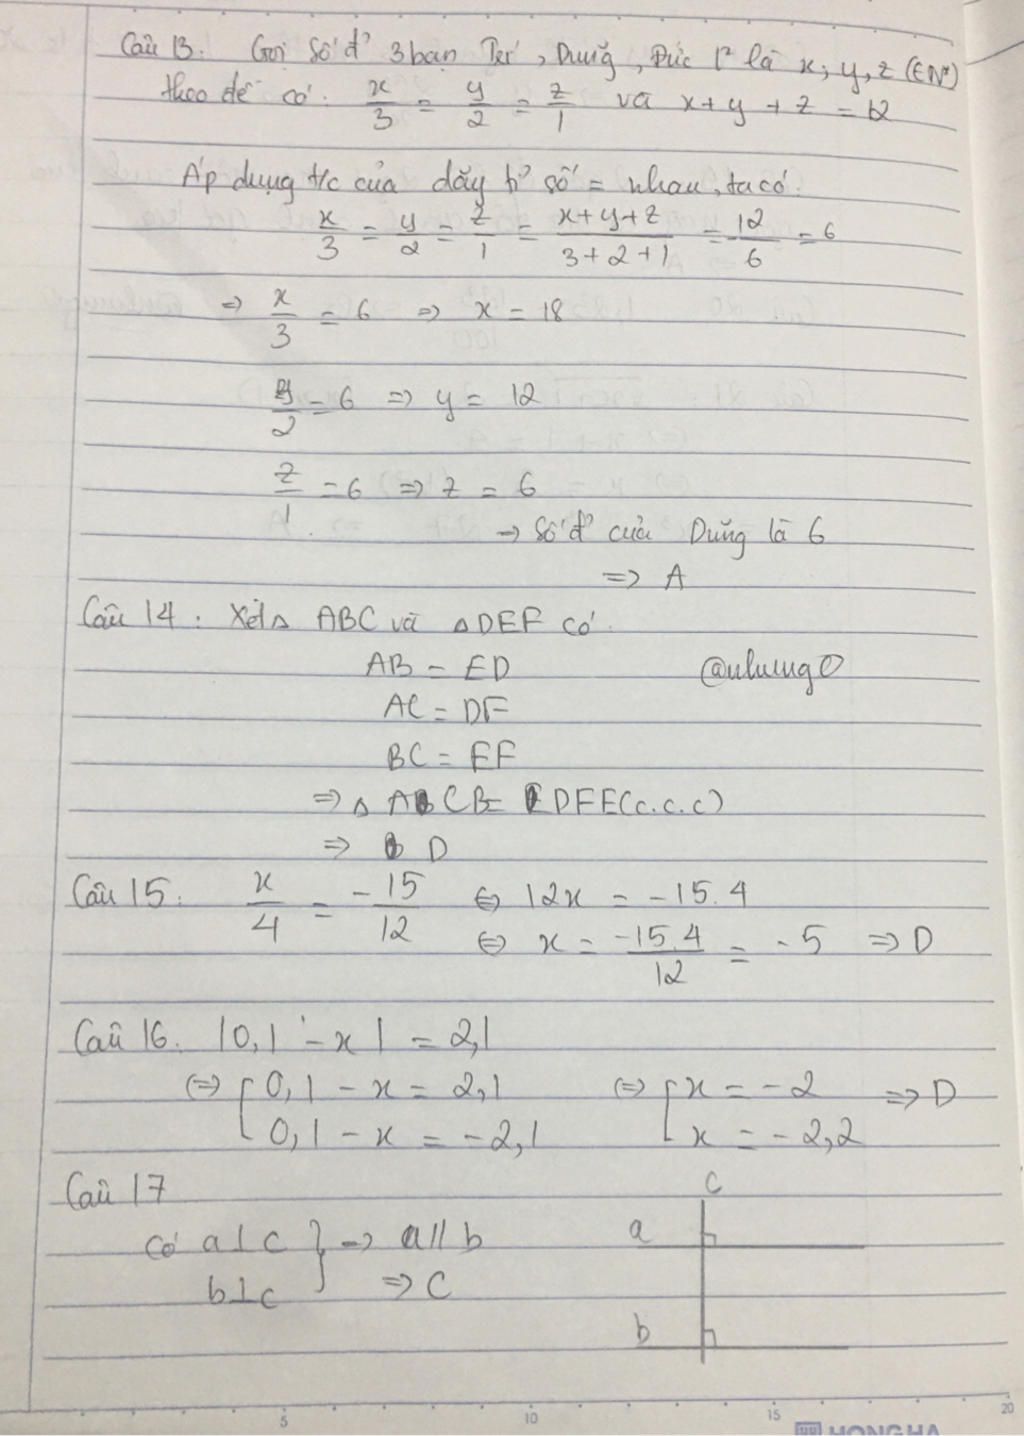 Câu 13. Gọi số đ' 3 bạn , Dũng, Đức lª là x, y, z (∈N*)
theo đề có. x/3 = y/2 = z/1 và x+y+z = 12
Áp dụng t/c của dãy tỉ số = nhau, ta có.
x/3 = y/2 = z/1 = x+y+z/3+2+1 = 12/6 = 6
=> x/3 = 6 => x = 18
y/2 = 6 => y = 12
z/1 = 6 => z = 6
-> Số đ' của Dũng là 6
=> A
Câu 14. Xét Δ ABC và Δ DEF có
AB = ED
@nhung0
AC = DF
BC = EF
=> Δ ACB = DFE (c.c.c)
=> D
Câu 15. x/4 = -15/12 <=> 12x = -15.4
<=> x = -15.4/12 = -5 => D
Câu 16. |0,1 - x| = 2,1
<=> [ 0,1 - x = 2,1 <=> [ x = -2 => D
0,1 - x = -2,1 x = -2,2
Câu 17
c
có a⊥c } -> a // b
a
b⊥c => C
b
5 10 15 20
HONG HA